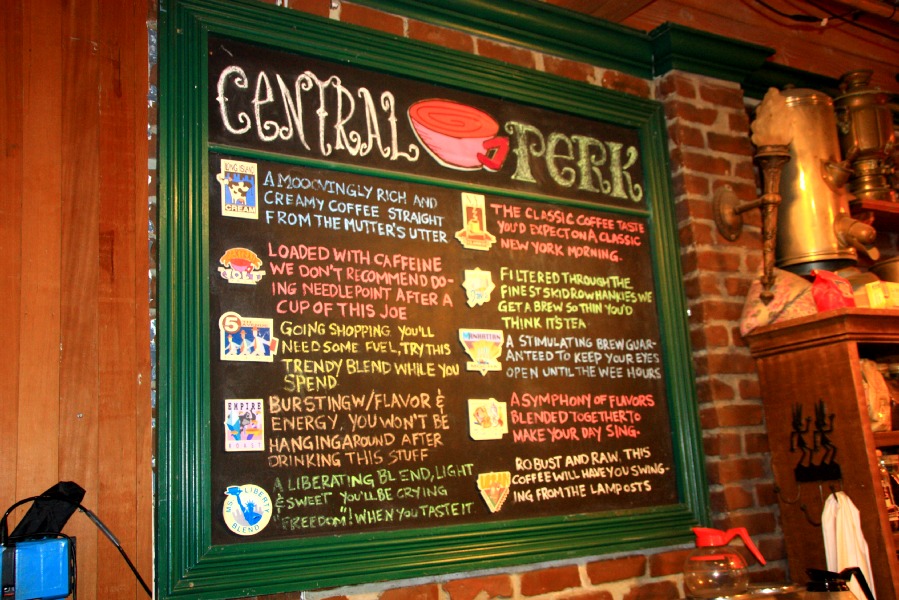 CENTRAL PERK
CREAM
A MOOOVINGLY RICH AND
CREAMY COFFEE STRAIGHT
FROM THE MUTTER'S UTTER
LOADED WITH CAFFEINE
WE DON'T RECOMMEND DO-
ING NEEDLEPOINT AFTER A
CUP OF THIS JOE
5
GOING SHOPPING YOU'LL
NEED SOME FUEL, TRY THIS
TRENDY BLEND WHILE YOU
SPEND
EMPIRE
ROAST
BURSTING W/FLAVOR &
ENERGY, YOU WON'T BE
HANGING AROUND AFTER
DRINKING THIS STUFF
MS LIBERTY
BLEND
A LIBERATING BLEND, LIGHT
& SWEET YOU'LL BE CRYING
"FREEDOM"! WHEN YOU TASTE IT
THE CLASSIC COFFEE TASTE
YOU'D EXPECT ON A CLASSIC
NEW YORK MORNING.
FILTERED THROUGH THE
FINEST SKID ROW HANKIES WE
GET A BREW SO THIN YOU'D
THINK IT'S TEA
MANHATTAN
A STIMULATING BREW GUAR-
ANTEED TO KEEP YOUR EYES
OPEN UNTIL THE WEE HOURS
A SYMPHONY OF FLAVORS
BLENDED TOGETHER TO
MAKE YOUR DAY SING.
ROBUST AND RAW, THIS
COFFEE WILL HAVE YOU SWING-
ING FROM THE LAMPOSTS